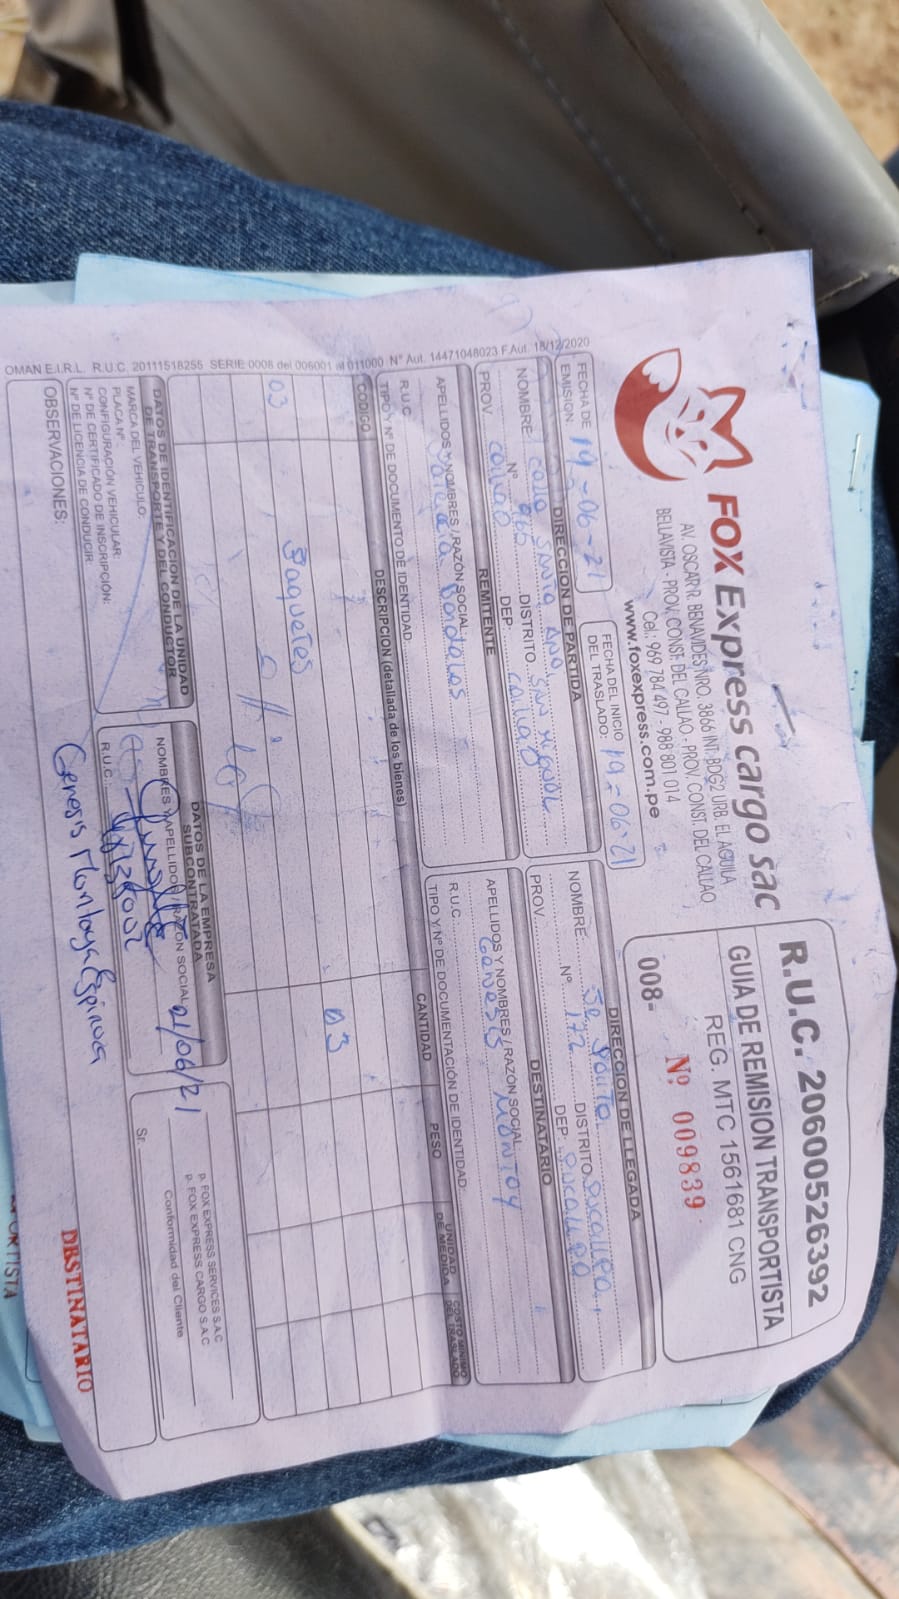 FOX Express cargo sac
AV. OSCAR R. BENAVIDES NRO. 3866 INT. BDG2 URB. EL AGUILA
BELLAVISTA - PROV. CONST. DEL CALLAO - PROV. CONST. DEL CALLAO
Cel.: 969 784 497 - 988 801 014
www.foxexpress.com.pe
R.U.C. 20600526392
GUIA DE REMISION TRANSPORTISTA
REG. MTC 1561681 CNG
008- Nº 009839
FECHA DE EMISIÓN: 19-06-21
FECHA DEL INICIO DEL TRASLADO: 19-06-21
DIRECCION DE PARTIDA
NOMBRE: Calle Santa Ana
Nº DISTRITO: San Miguel
PROV. Callao DEP: Callao
DIRECCION DE LLEGADA
NOMBRE:
Nº 172 DISTRITO: Pucallpa
PROV. DEP: Pucallpa
REMITENTE
APELLIDOS Y NOMBRES / RAZÓN SOCIAL:
R.U.C.
TIPO Y Nº DE DOCUMENTO DE IDENTIDAD:
DESTINATARIO
APELLIDOS Y NOMBRES / RAZÓN SOCIAL:
Genesis Montoy
R.U.C.
TIPO Y Nº DE DOCUMENTACIÓN DE IDENTIDAD:
CODIGO DESCRIPCION (detallada de los bienes) CANTIDAD PESO UNIDAD DE MEDIDA COSTO MINIMO DEL TRASLADO
03 Paquetes 03
DATOS DE IDENTIFICACION DE LA UNIDAD DE TRANSPORTE Y DEL CONDUCTOR
MARCA DEL VEHICULO:
PLACA Nº
CONFIGURACIÓN VEHICULAR:
Nº DE CERTIFICADO DE INSCRIPCIÓN:
Nº DE LICENCIA DE CONDUCIR:
DATOS DE LA EMPRESA SUBCONTRATADA
NOMBRES Y APELLIDO / RAZÓN SOCIAL 21/06/21
R.U.C.:
P. FOX EXPRESS SERVICES S.A.C
P. FOX EXPRESS CARGO S.A.C
Conformidad del Cliente
Sr.
OBSERVACIONES:
Genesis Montoya Espinoa
DESTINATARIO
OMAN E.I.R.L. R.U.C. 20111518255 SERIE 0008 del 006001 al 011000 Nº Aut. 14471048023 F.Aut. 18/12/2020